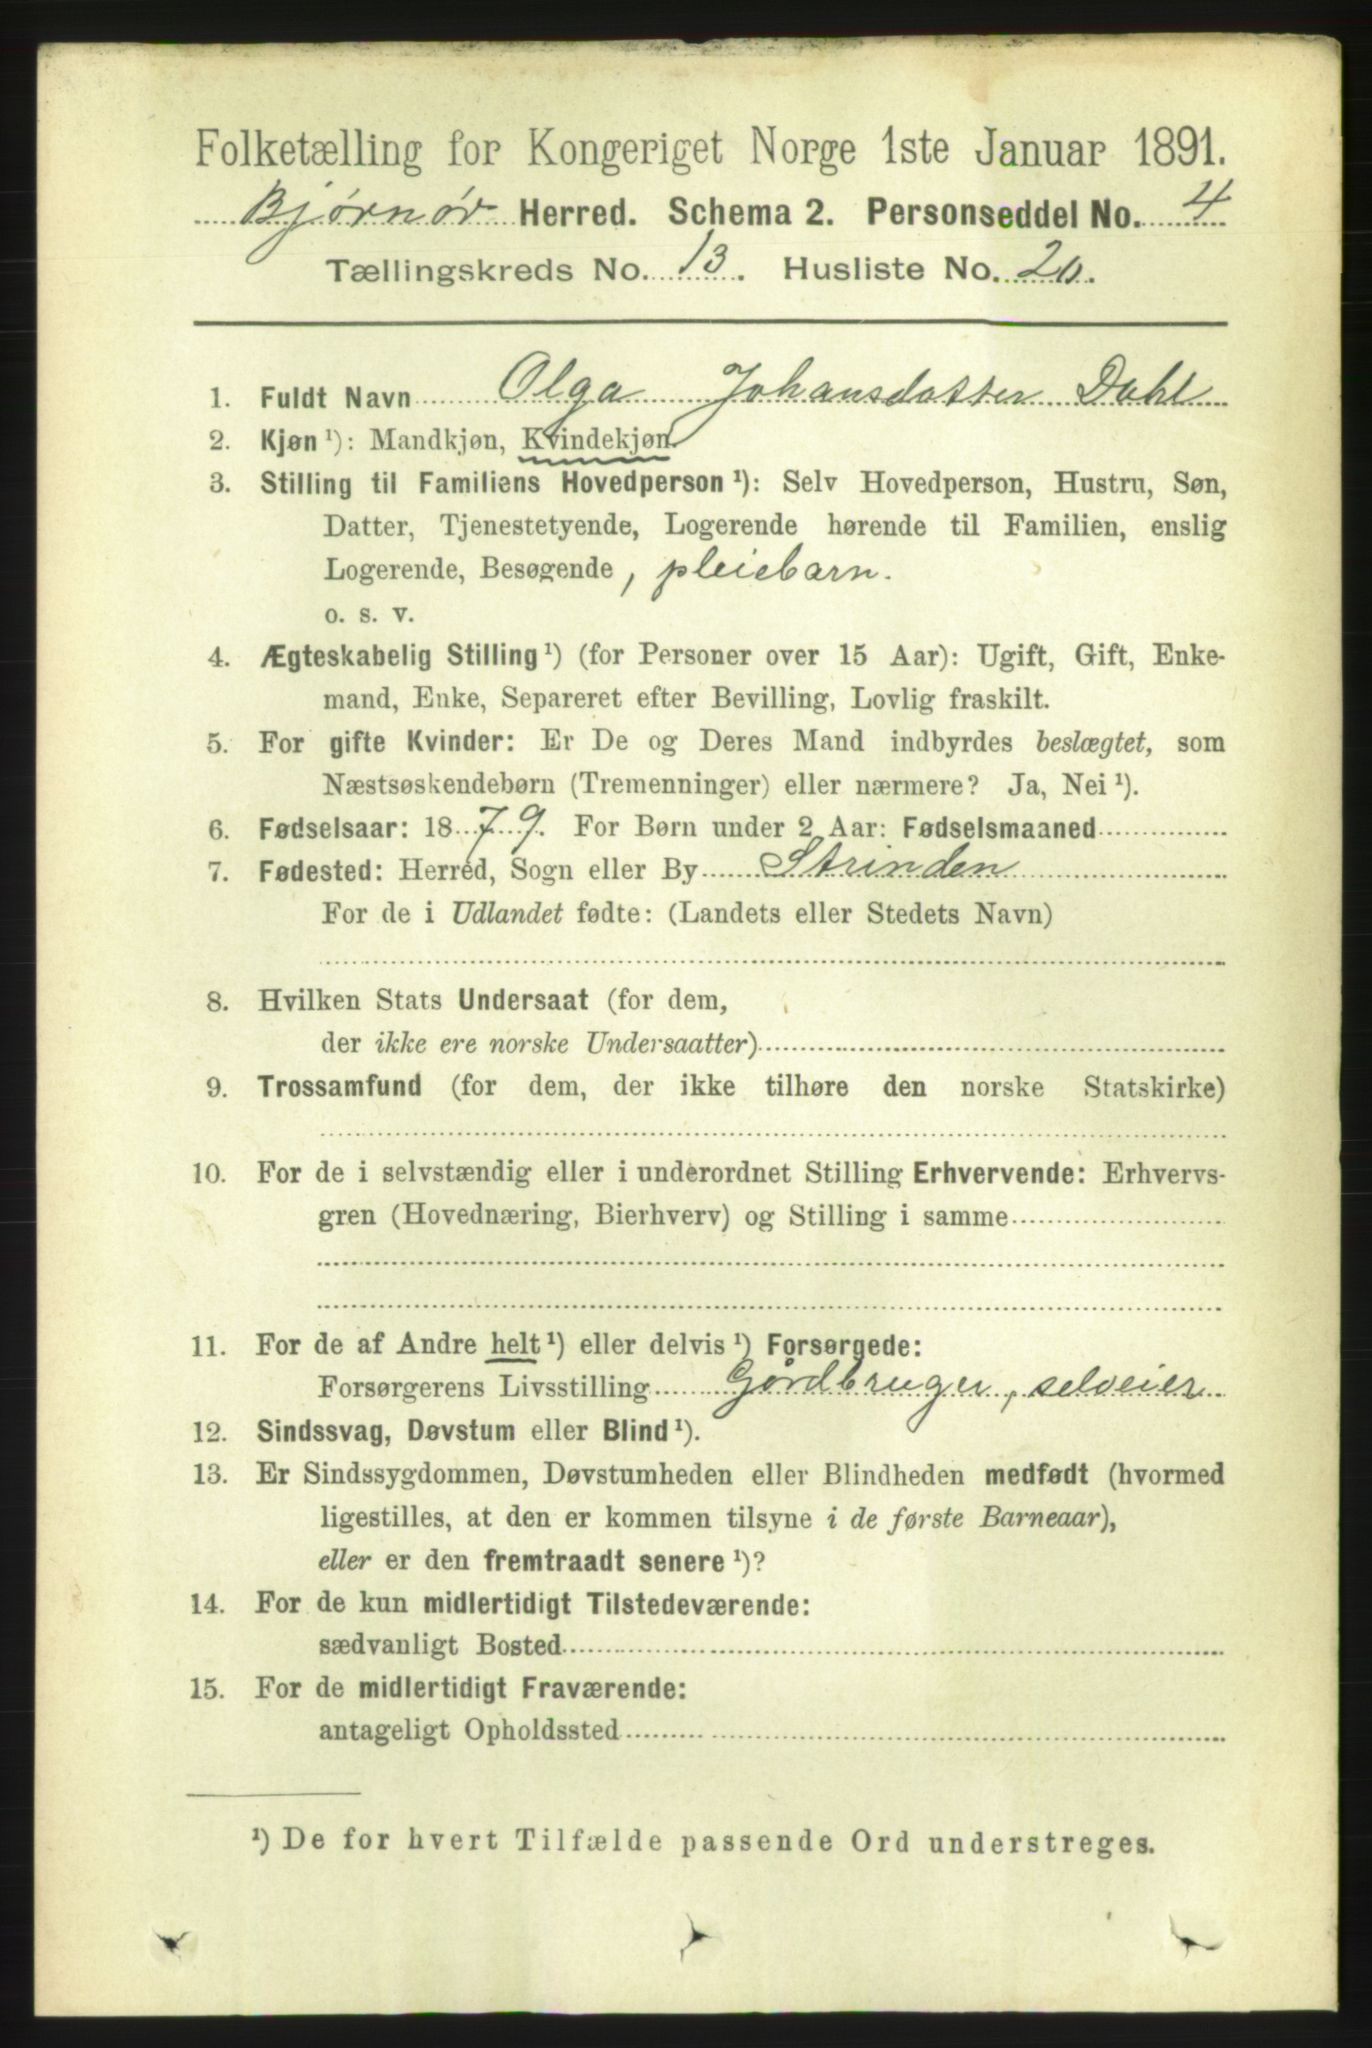 Folketælling for Kongeriget Norge 1ste Januar 1891.
Bjørnør Herred. Schema 2. Personseddel No. 4
Tællingskreds No. 13. Husliste No. 20.
1. Fuldt Navn Olga Johansdatter Dahl
2. Kjøn ¹): Mandkjøn, Kvindekjøn
3. Stilling til Familiens Hovedperson ¹): Selv Hovedperson, Hustru, Søn,
Datter, Tjenestetyende, Logerende hørende til Familien, enslig
Logerende, Besøgende, pleiebarn.
o. s. v.
4. Ægteskabelig Stilling ¹) (for Personer over 15 Aar): Ugift, Gift, Enke-
mand, Enke, Separeret efter Bevilling, Lovlig fraskilt.
5. For gifte Kvinder: Er De og Deres Mand indbyrdes beslægtet, som
Næstsøskendebørn (Tremenninger) eller nærmere? Ja, Nei ¹).
6. Fødselsaar: 1879. For Børn under 2 Aar: Fødselsmaaned
7. Fødested: Herred, Sogn eller By Strinden
For de i Udlandet fødte: (Landets eller Stedets Navn)
8. Hvilken Stats Undersaat (for dem,
der ikke ere norske Undersaatter)
9. Trossamfund (for dem, der ikke tilhøre den norske Statskirke)
10. For de i selvstændig eller i underordnet Stilling Erhvervende: Erhvervs-
gren (Hovednæring, Bierhverv) og Stilling i samme
11. For de af Andre helt ¹) eller delvis ¹) Forsørgede:
Forsørgerens Livsstilling Gårdbruger, selveier
12. Sindssvag, Døvstum eller Blind ¹).
13. Er Sindssygdommen, Døvstumheden eller Blindheden medfødt (hvormed
ligestilles, at den er kommen tilsyne i de første Barneaar),
eller er den fremtraadt senere ¹)?
14. For de kun midlertidigt Tilstedeværende:
sædvanligt Bosted
15. For de midlertidigt Fraværende:
antageligt Opholdssted
¹) De for hvert Tilfælde passende Ord understreges.